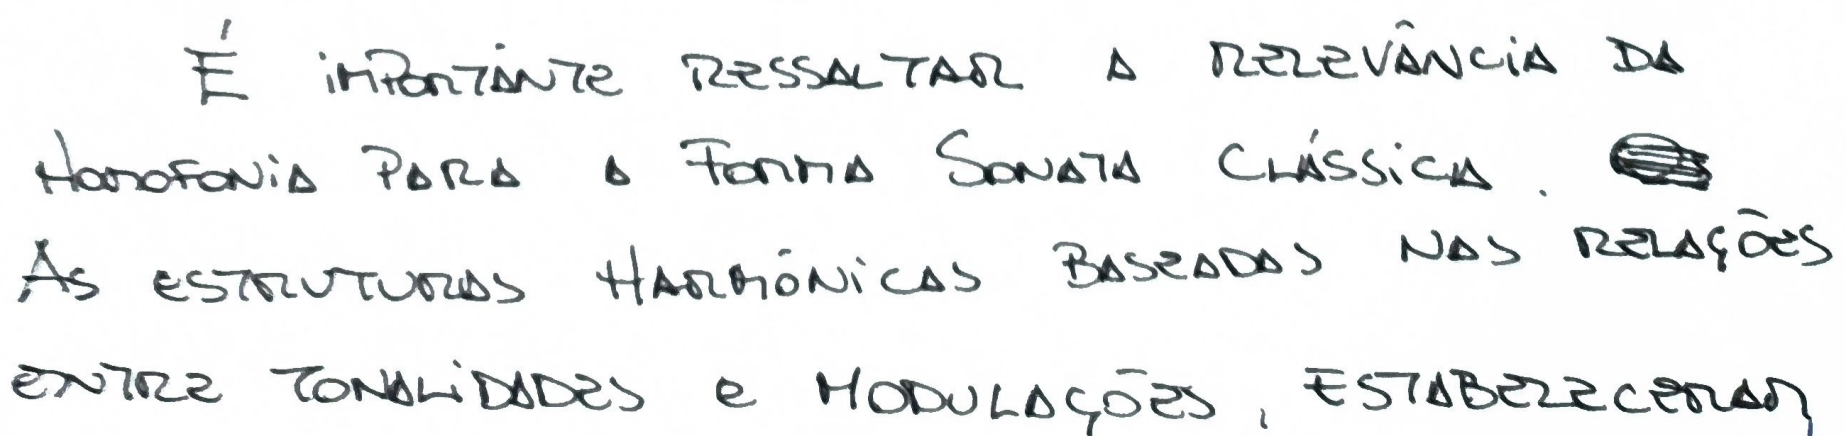 É importante ressaltar a relevância da
Homofonia para a Forma Sonata Clássica.
As estruturas Harmônicas Baseadas nas relações
entre Tonalidades e Modulações, estabeleceram